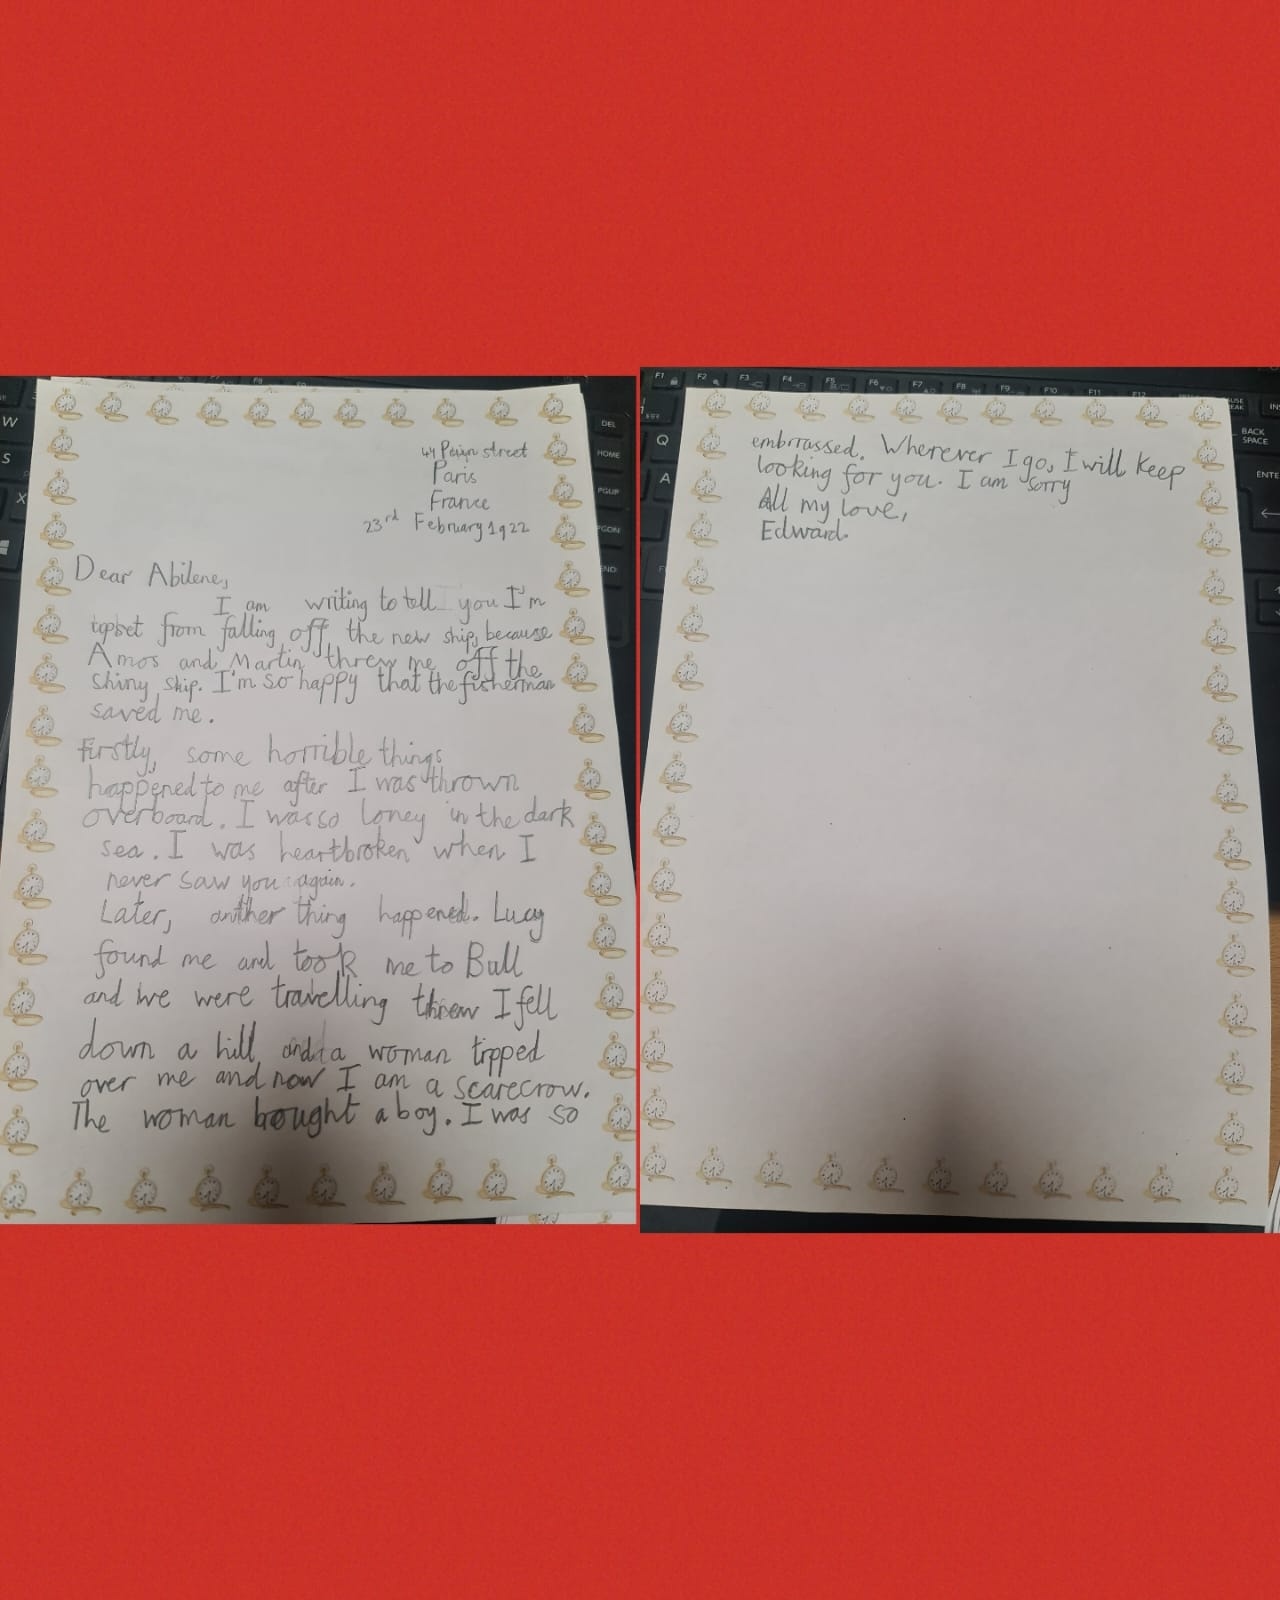 44 street
Paris
France
23rd February 1922
Dear Abilene,
I am writing to tell you I'm
upset from falling off the new ship, because
Amos and Martin threw me off the
shiny ship. I'm so happy that the fisherman
saved me.
Firstly, some horrible things
happened to me after I was thrown
overboard. I was so loney in the dark
sea. I was heartbroken when I
never saw you again.
Later, anther thing happened. Lucy
found me and took me to Bull
and we were travelling I fell
down a hill and a woman tipped
over me and now I am a scarecrow.
The woman bought a boy. I was so
embrrassed. Wherever I go, I will keep
looking for you. I am sorry
All my love,
Edward.